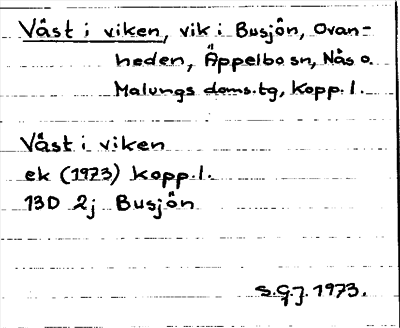 Väst i viken, vik i Busjön, Ovan-
heden, Äppelbo sn, Nås o.
Malungs doms.tg, Kopp.l.
Väst i viken
ek (1973) Kopp.l.
13D 2j Busjön
S.G.J. 1973.